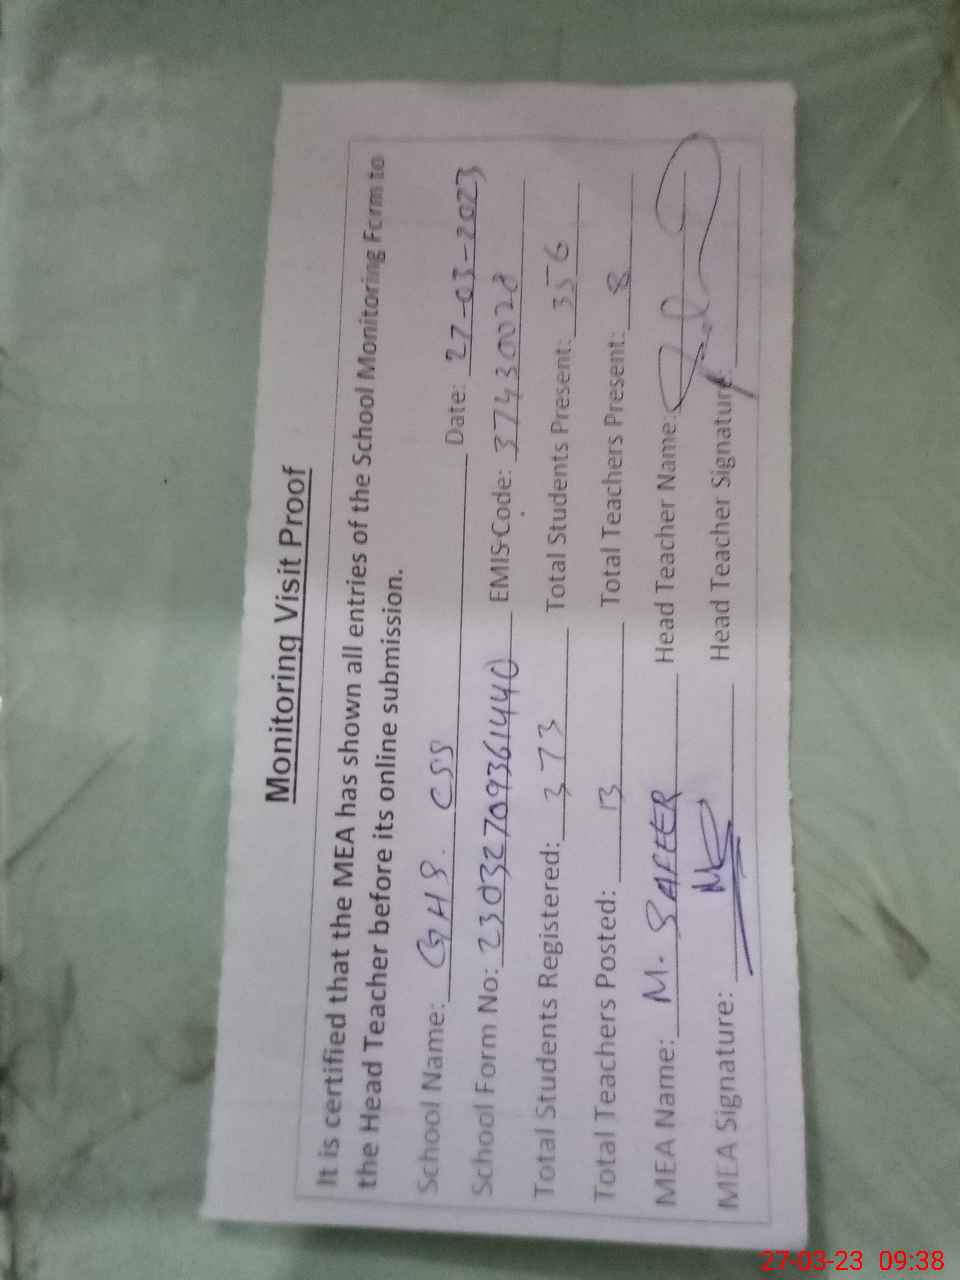 Monitoring Visit Proof
It is certified that the MEA has shown all entries of the School Monitoring Form to
the Head Teacher before its online submission.
School Name: GHS. CSS Date: 27-03-2023
School Form No: 23032709361440 EMIS Code: 37430028
Total Students Registered: 373 Total Students Present: 356
Total Teachers Posted: 13 Total Teachers Present: 8
MEA Name: M. SAFEER Head Teacher Name:
MEA Signature: Head Teacher Signature:
27-03-23 09:38